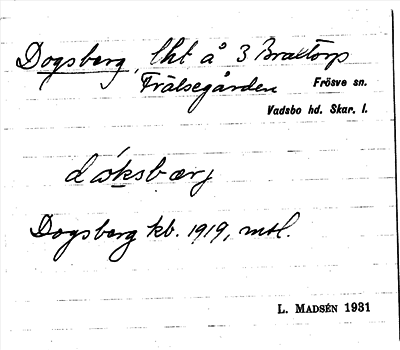 Dogsberg, lht å 3 Braxtorp
Frälsegården Frösve sn.
Vadsbo hd. Skar. l.
dóksbærj
Dogsberg kb. 1919, mtl.
L. MADSÉN 1931